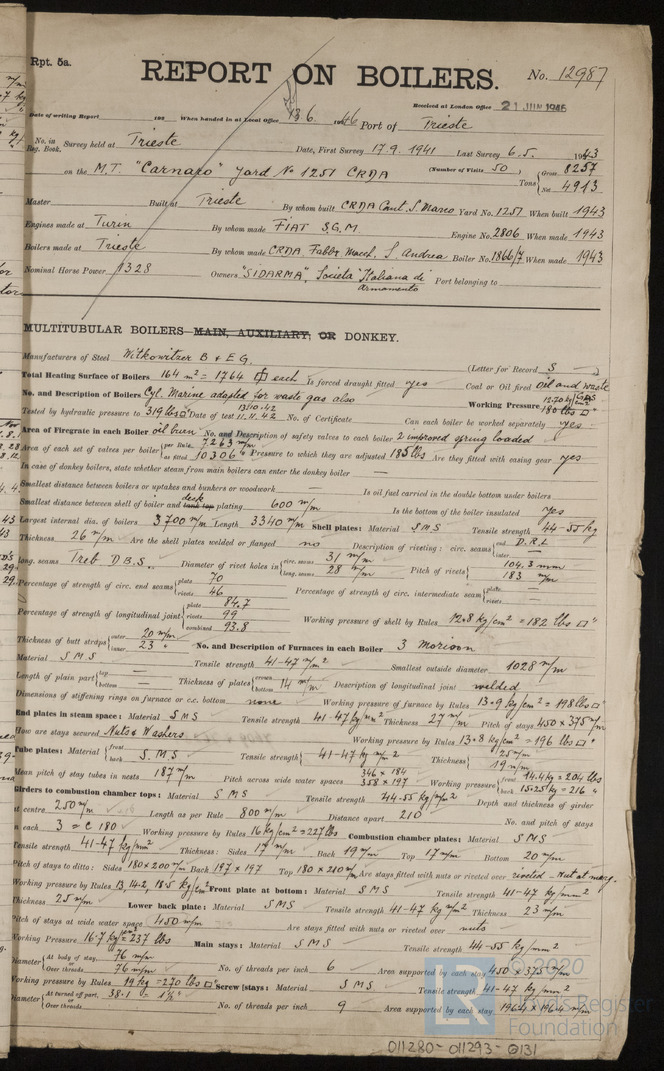 Rpt. 5a.
REPORT ON BOILERS.
No. 12987
Received at London Office 21 JUN 1946
Date of writing Report 192 When handed in at Local Office 13.6. 1946 Port of Trieste
No. in Reg. Book. Survey held at Trieste Date, First Survey 17.9.1941 Last Survey 6.5. 1943
on the M.T. "Carnaro" Yard No 1251 CRDA (Number of Visits 50) Tons Gross 8257 Net 4913
Master Built at Trieste By whom built CRDA Cant. S. Marco Yard No. 1251 When built 1943
Engines made at Turin By whom made FIAT S.G.M. Engine No. 2806 When made 1943
Boilers made at Trieste By whom made CRDA Fabbr. Macch. S. Andrea Boiler No. 1866/7 When made 1943
Nominal Horse Power 1328 Owners "SIDARMA", Società Italiana di Armamento Port belonging to
MULTITUBULAR BOILERS MAIN, AUXILIARY, OR DONKEY.
Manufacturers of Steel Witkowitzer B & E G. (Letter for Record S)
Total Heating Surface of Boilers 164 m² = 1764 each Is forced draught fitted yes Coal or Oil fired Oil and waste gas
No. and Description of Boilers Cyl. Marine adapted for waste gas also Working Pressure 180 lbs
Tested by hydraulic pressure to 319 lbs Date of test 13/10.42 11.11.42 No. of Certificate Can each boiler be worked separately yes
Area of Firegrate in each Boiler oil burn No. and Description of safety valves to each boiler 2 improved spring loaded
Area of each set of valves per boiler per Rule 7263 m/m as fitted 10306 " Pressure to which they are adjusted 185 lbs Are they fitted with easing gear yes
In case of donkey boilers, state whether steam from main boilers can enter the donkey boiler —
Smallest distance between boilers or uptakes and bunkers or woodwork — Is oil fuel carried in the double bottom under boilers
Smallest distance between shell of boiler and tank top deck plating 600 m/m Is the bottom of the boiler insulated yes
Largest internal dia. of boilers 3700 m/m Length 3340 m/m Shell plates: Material S M S Tensile strength 44-55 kg
Thickness 26 m/m Are the shell plates welded or flanged no Description of riveting: circ. seams end D.R.L. inter. —
long. seams Treb D.B.S. Diameter of rivet holes in circ. seams 31 m/m long. seams 28 m/m Pitch of rivets 104.3 mm 183 m/m
Percentage of strength of circ. end seams plate 70 rivets 46 Percentage of strength of circ. intermediate seam plate — rivets —
Percentage of strength of longitudinal joint plate 84.7 rivets 99 combined 93.8 Working pressure of shell by Rules 12.8 kg/cm² = 182 lbs
Thickness of butt straps outer 20 m/m inner 23 " No. and Description of Furnaces in each Boiler 3 Morison
Material S M S Tensile strength 41-47 kg m/m² Smallest outside diameter 1028 m/m
Length of plain part top — bottom — Thickness of plates crown bottom 14 m/m Description of longitudinal joint welded
Dimensions of stiffening rings on furnace or c.c. bottom none Working pressure of furnace by Rules 13.9 kg/cm² = 198 lbs
End plates in steam space: Material S M S Tensile strength 41-47 kg/mm² Thickness 27 m/m Pitch of stays 450 x 375 m/m
How are stays secured Nuts & Washers Working pressure by Rules 13.8 kg/cm² = 196 lbs
Tube plates: Material front back S.M.S Tensile strength 41-47 kg m/m² Thickness 25 m/m 19 m/m
Mean pitch of stay tubes in nests 187 m/m Pitch across wide water spaces 346 x 184 358 x 197 Working pressure front 14.4 kg = 204 lbs back 15.25 kg = 216 "
Girders to combustion chamber tops: Material S M S Tensile strength 44-55 kg/mm² Depth and thickness of girder
at centre 250 m/m Length as per Rule 800 m/m Distance apart 210 No. and pitch of stays
in each 3 = c 180 Working pressure by Rules 16 kg/cm² = 227 lbs Combustion chamber plates: Material S M S
Tensile strength 41-47 kg/mm² Thickness: Sides 17 m/m Back 19 m/m Top 17 m/m Bottom 20 m/m
Pitch of stays to ditto: Sides 180 x 200 m/m Back 197 x 197 Top 180 x 210 m/m Are stays fitted with nuts or riveted over riveted - nut at marg.
Working pressure by Rules 13, 14.2, 18.5 kg/cm² Front plate at bottom: Material S M S Tensile strength 41-47 kg/mm²
Thickness 25 m/m Lower back plate: Material S M S Tensile strength 41-47 kg m/m² Thickness 23 m/m
Pitch of stays at wide water space 450 m/m Are stays fitted with nuts or riveted over nuts
Working Pressure 16.7 kg/cm² = 237 lbs Main stays: Material S M S Tensile strength 44-55 kg/mm²
Diameter At body of stay, or Over threads 76 m/m 76 m/m No. of threads per inch 6 Area supported by each stay 450 x 375 m/m
Working pressure by Rules 19 kg = 270 lbs Screw stays: Material S M S Tensile strength 41-47 kg/mm²
Diameter At turned off part, or Over threads 38.1 = 1½" No. of threads per inch 9 Area supported by each stay 196.4 x 196.4 m/m
© 2020
LR
Lloyd's Register
Foundation
011280-011293-0131